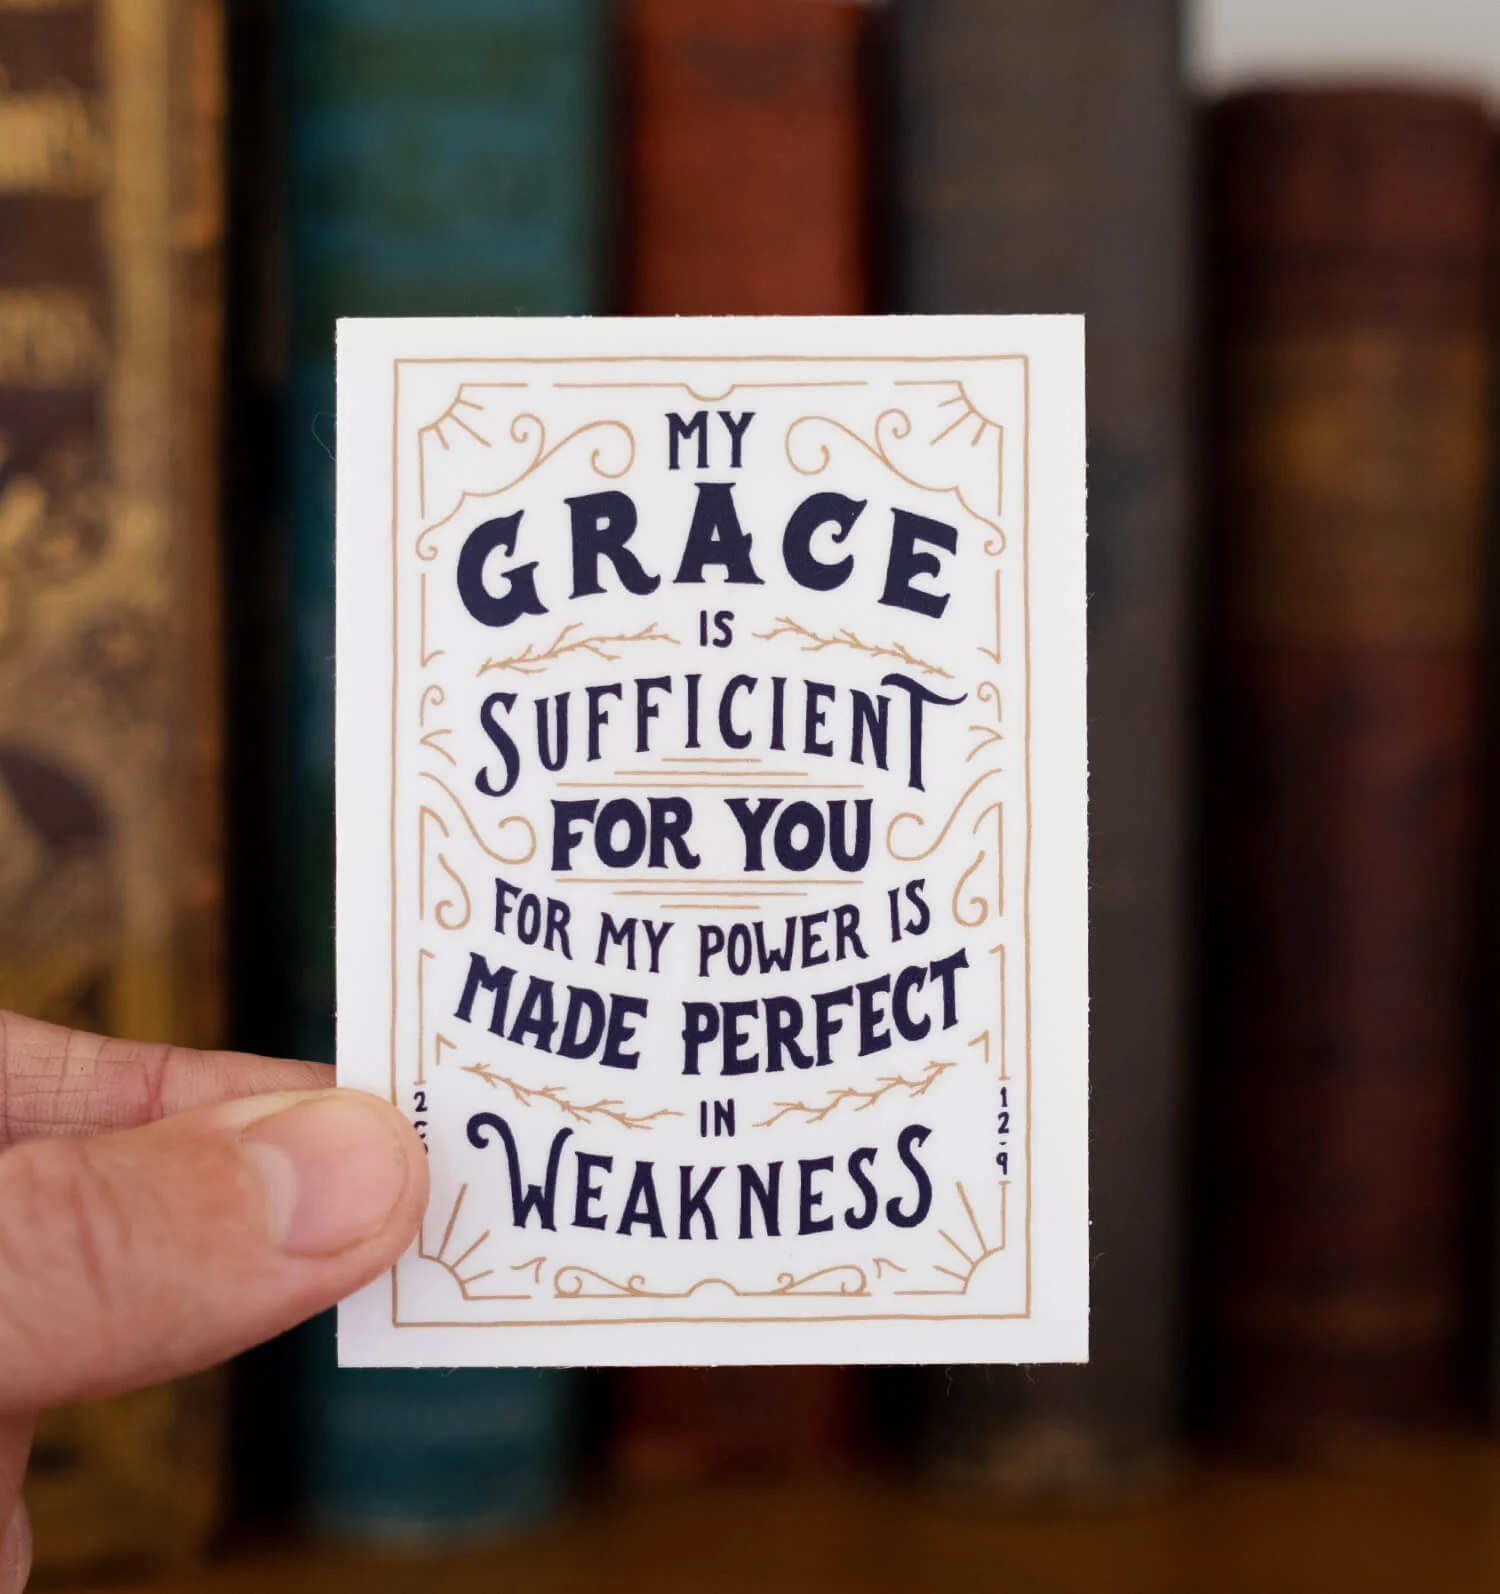 MY
GRACE
IS
SUFFICIENT
FOR YOU
FOR MY POWER IS
MADE PERFECT
IN
WEAKNESS
2
12:9